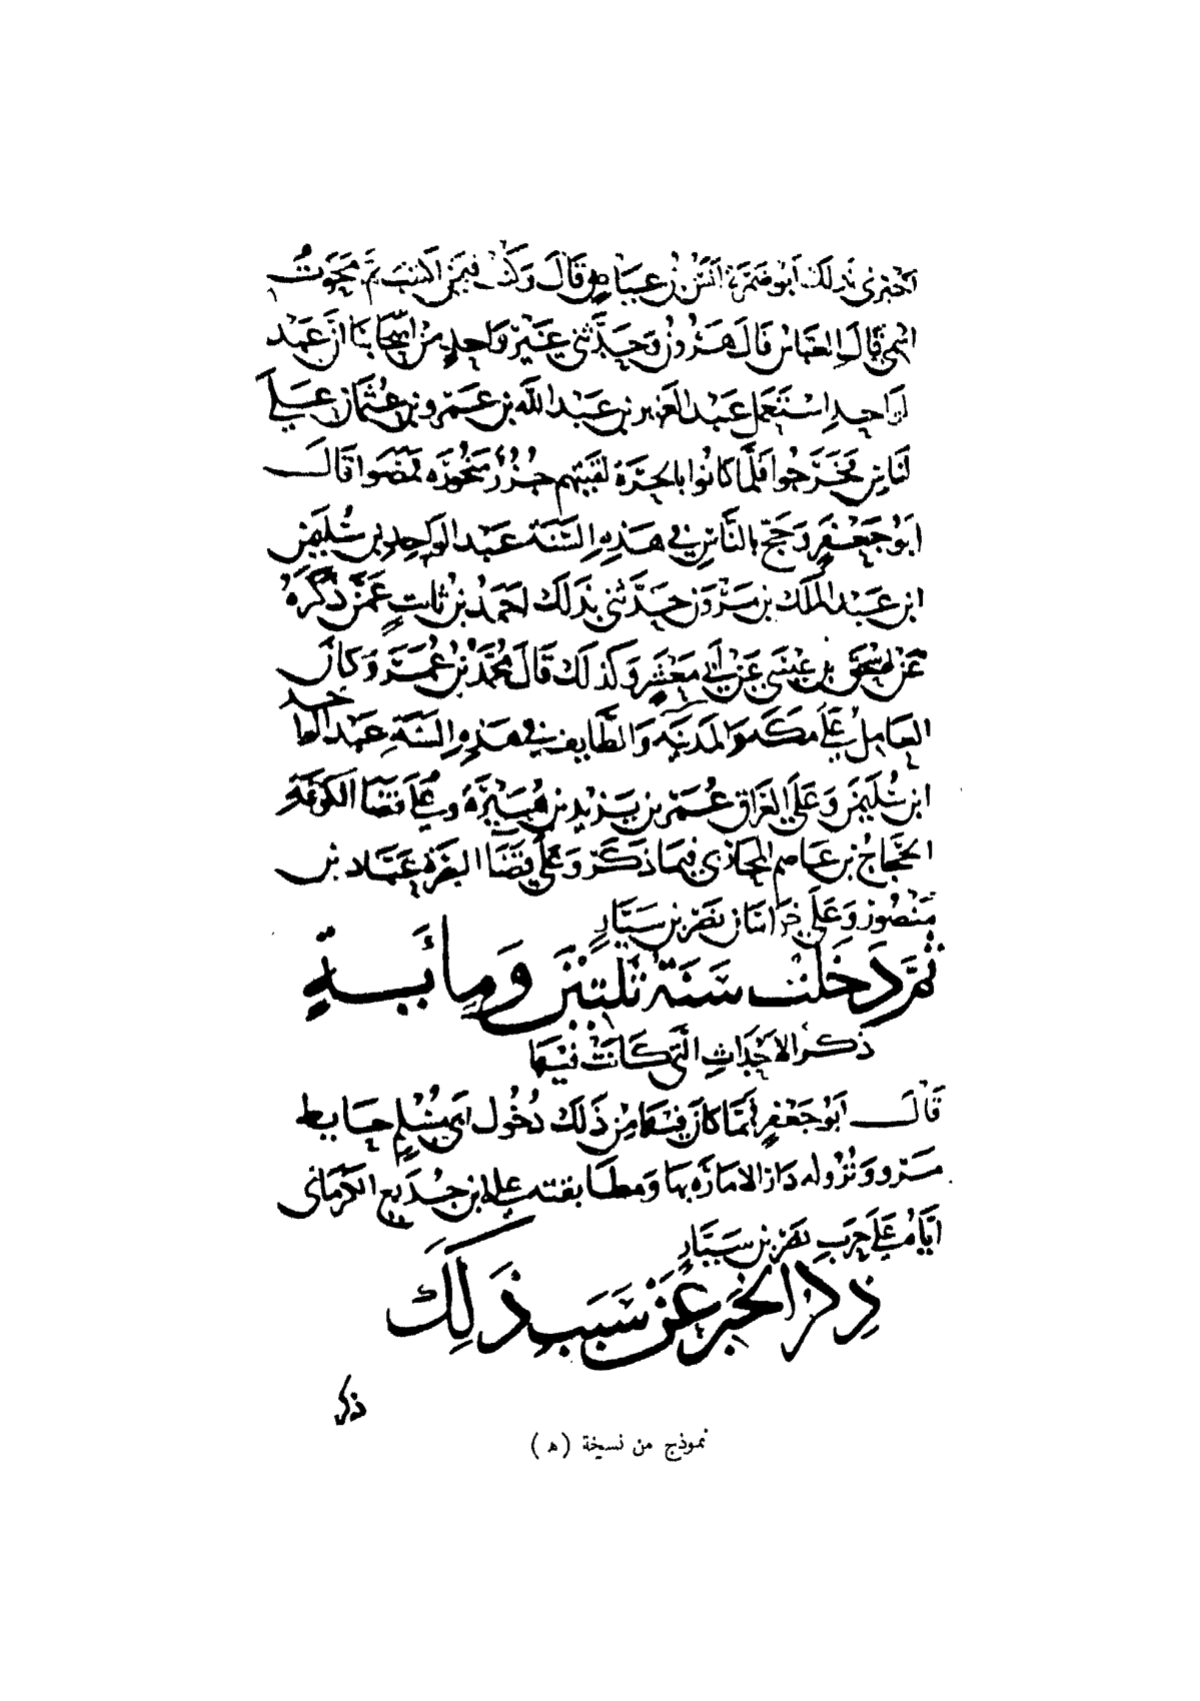 اخبرني بذلك ابو ضمرة انس بن عياض قال وكنت فيمن اكتتب ثم محوت
اسمي قال العباس قال هرون وحدثني غير واحد من اصحابنا ان عبد
الواحد استعمل عبد العزيز بن عبد الله بن عمرو بن عثمان علي
الناس فخرجوا فلما كانوا بالحرة لقيتهم جزر منحورة فمضوا قال
ابو جعفر وحج بالناس في هذه السنة عبد الواحد بن سليمن
ابن عبد الملك بن مرون حدثني بذلك احمد بن ثابت عمن ذكره
عن اسحق بن عيسى عن ابي معشر وكذلك قال محمد بن عمر وكان
العامل على مكة والمدينة والطايف في هذه السنة عبد الواحد
ابن سليمن وعلى العراق عمر بن يزيد بن هبيرة وعلى قضا الكوفة
الحجاج بن عاصم المحاربي فيما ذكر وعلى قضا البصرة عباد بن
منصور وعلى خراسان نصر بن سيار
ثم دخلت سنة ثلثين ومائة
ذكر الاحداث التي كانت فيها
قال ابو جعفر فمما كان فيها من ذلك دخول ابي مسلم حايط
مرو ونزوله دار الامارة بها ومطابقته علي ابن جديع الكرماني
اياه على حرب نصر بن سيار
ذكر الخبر عن سبب ذلك
ذكر
نموذج من نسخة (ه)